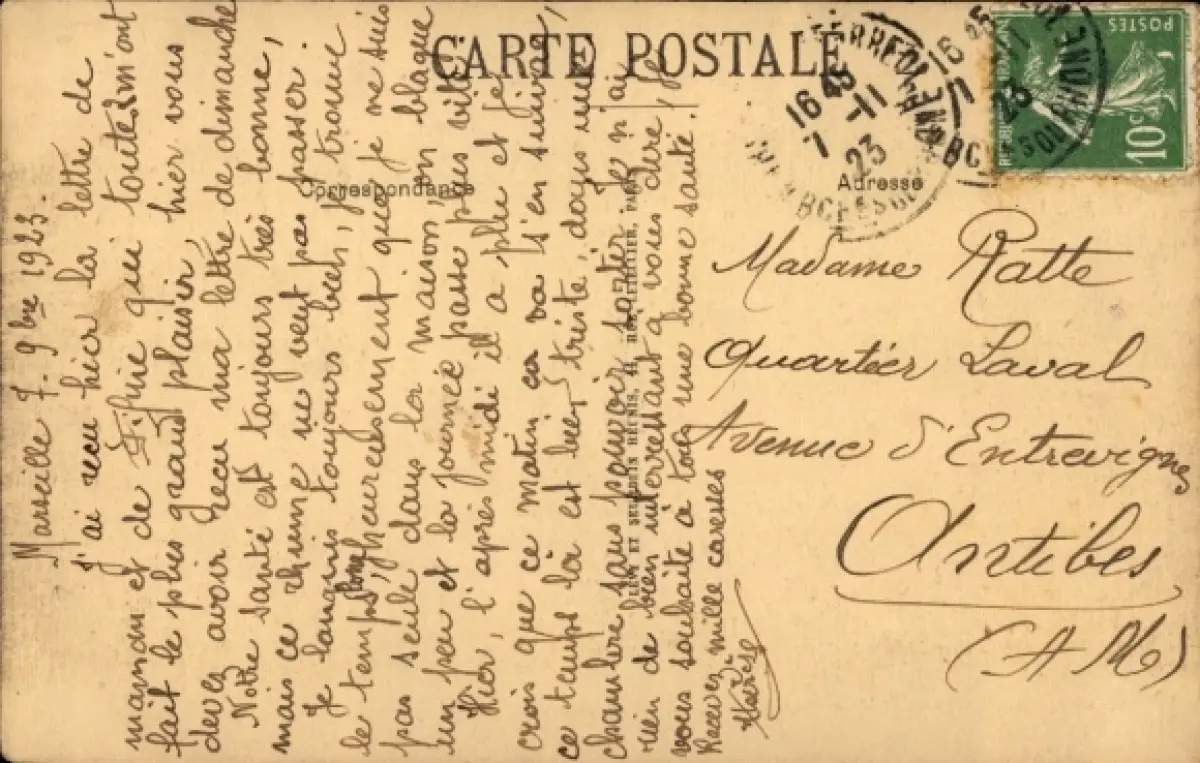 CARTE POSTALE
Correspondance
Adresse
POSTES
10c
16 45
7 -11
23
Marseille 7. 9bre 1923.
J'ai reçu hier la lettre de
maman et de Fifine qui toutes m'ont
fait le plus grand plaisir, hier vous
devez avoir reçu ma lettre de dimanche
Notre santé est toujours très bonne,
mais ce rhume ne veut pas passer.
Je languis toujours bien, je trouve
le temps long heureusement que je ne suis
pas seule dans la maison, on blague
un peu et la journée passe plus vite.
Hier, l'après midi il a plu et je
crois que ce matin ça va s'en suivre,
ce temps là est bien triste, dans une
chambre sans pouvoir sortir. Je n'ai
rien de bien interressant à vous dire, je
vous souhaite à tous une bonne santé.
Recevez mille caresses
Madame Ratte
Quartier Laval
Avenue d'Entrevigne
Antibes
(A M)